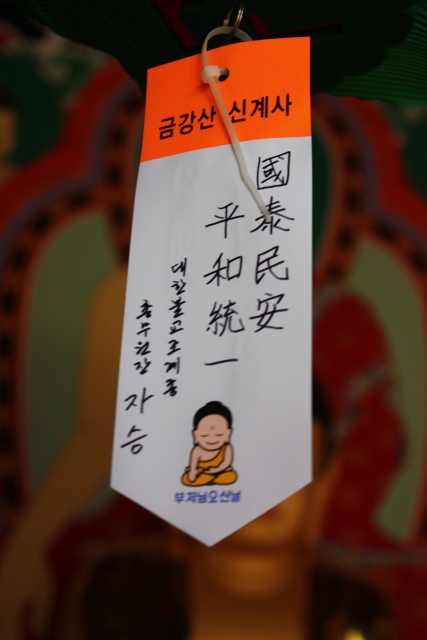 금강산 신계사
國泰民安
平和統一
대한불교조계종
총무원장 자승
부처님오신날